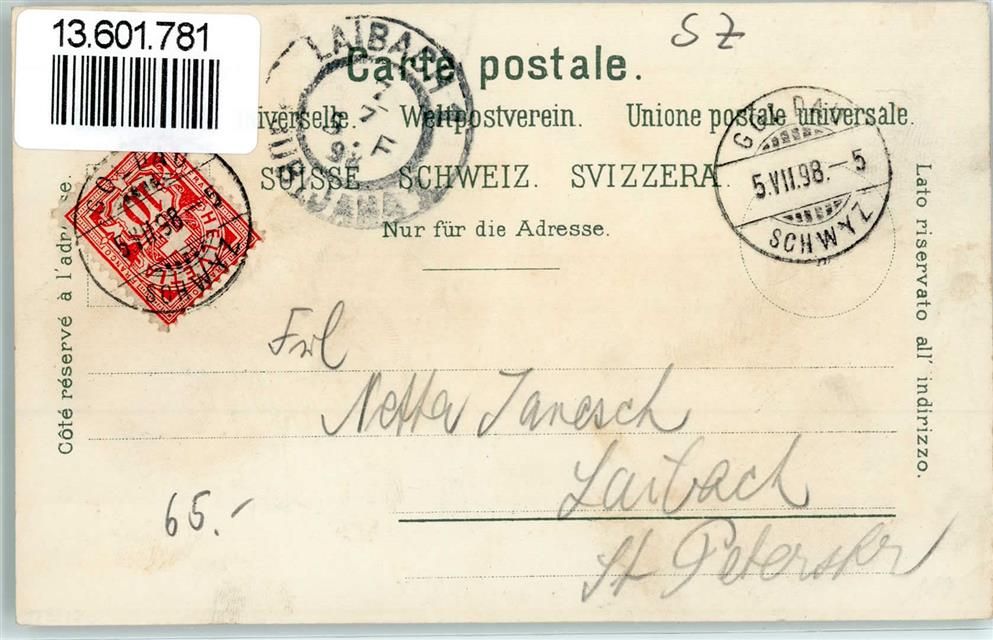 13.601.781
SZ
LAIBACH
Carte postale.
Weltpostverein. Unione postale universale.
SUISSE SCHWEIZ. SVIZZERA.
Nur für die Adresse.
GOLDAU
5.VII.98.-5
SCHWYZ
10
HELVETIA
GOLDAU
5.VII.98
Côté réservé à l'adresse.
Lato riservato all' indirizzo.
Frl
Netta Janesch
Laibach
St Peterstr
65.-